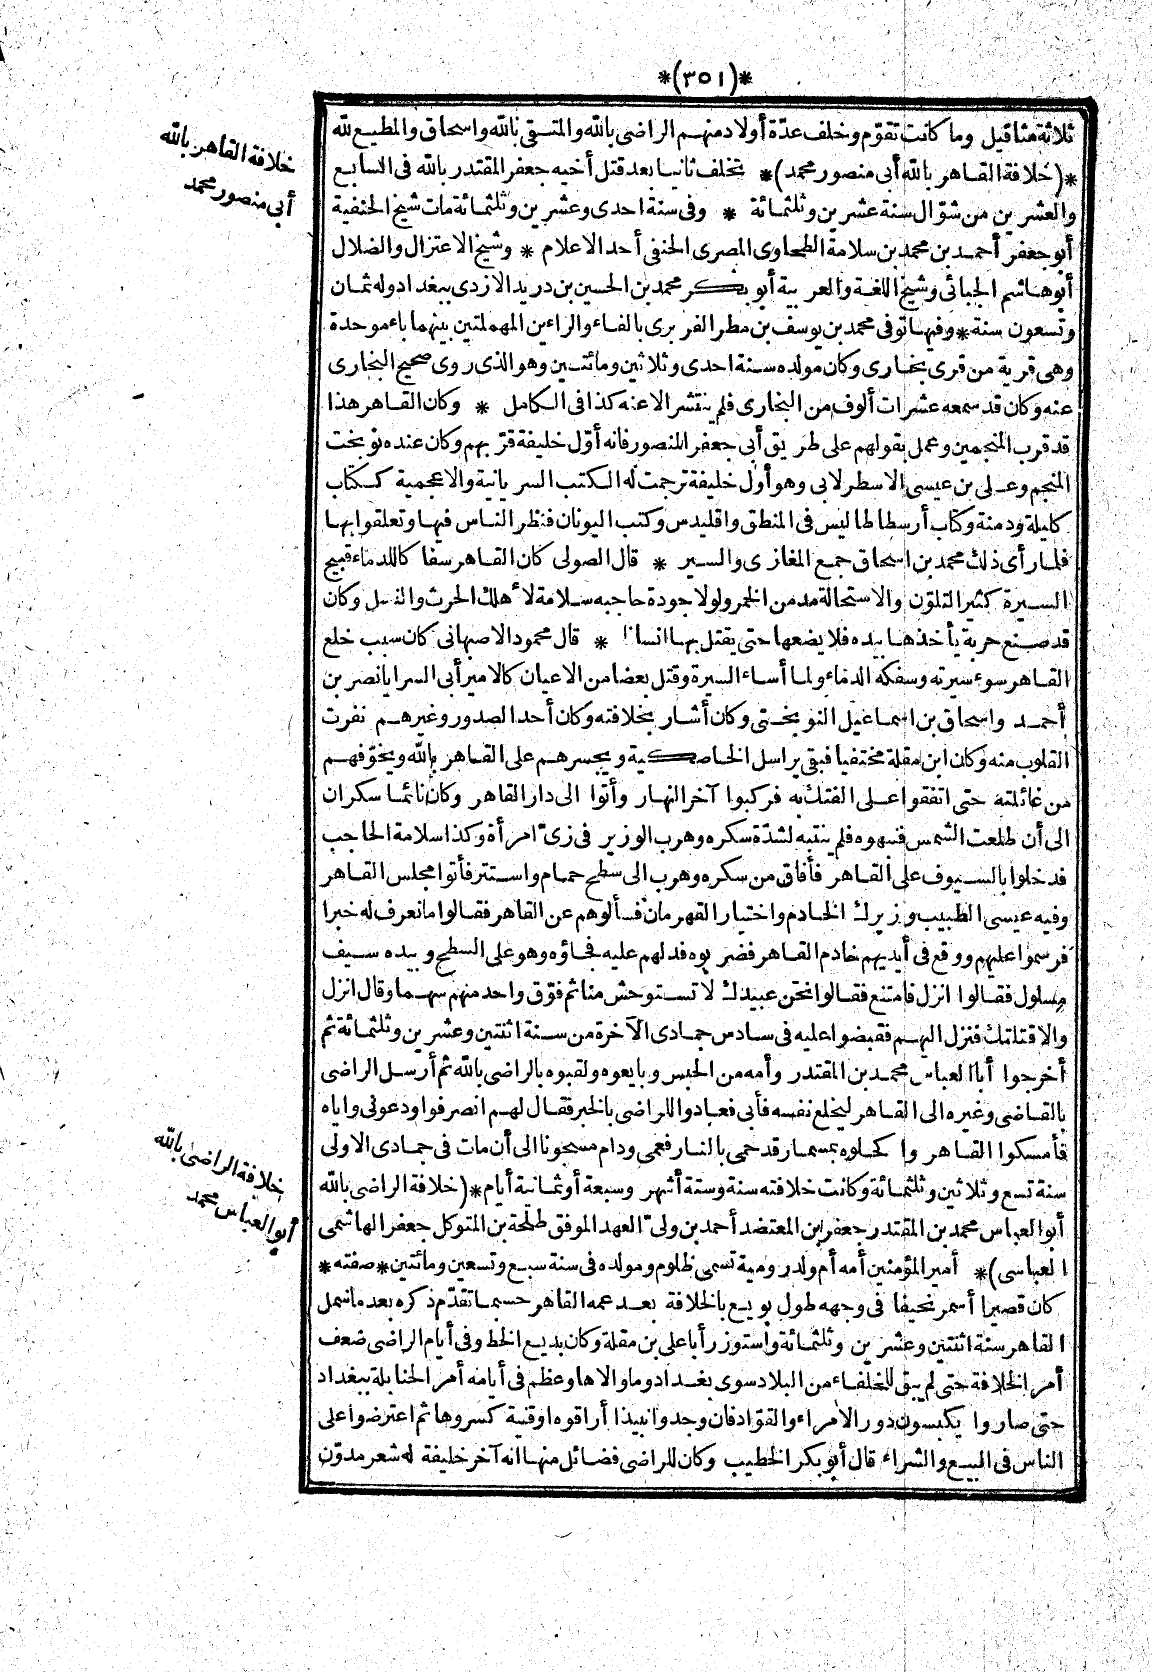 *(٣٥١)*
ثلاثة مثاقيل وما كانت تقوّم وخلف عدّة أولاد منهم الراضى بالله والمتقى بالله واسحاق والمطيع لله
*(خلافة القاهر بالله أبى منصور محمد)* تخلف ثانيا بعد قتل أخيه جعفر المقتدر بالله فى السابع
والعشرين من شوّال سنة عشرين وثلثمائة * وفى سنة احدى وعشرين وثلثمائة مات شيخ الحنفية
أبو جعفر أحمد بن محمد بن سلامة الطحاوى المصرى الحنفى أحد الاعلام * وشيخ الاعتزال والضلال
أبو هاشم الجبائى وشيخ اللغة والعربية أبو بكر محمد بن الحسين بن دريد الازدى ببغداد وله ثمان
وتسعون سنة * وفيها توفى محمد بن يوسف بن مطر الفربرى بالفاء والراءين المهملتين بينهما باء موحدة
وهى قرية من قرى بخارى وكان مولده سنة احدى وثلاثين ومائتين وهو الذى روى صحيح البخارى
عنه وكان قد سمعه عشرات ألوف من البخارى فلم ينتشر الا عنه كذا فى الكامل * وكان القاهر هذا
قد قرب المنجمين وعمل بقولهم على طريق أبى جعفر المنصور فانه أوّل خليفة قرّبهم وكان عنده نوبخت
المنجم وعلى بن عيسى الاسطرلابى وهو أول خليفة ترجمت له الكتب السريانية والاعجمية ككتاب
كليلة ودمنة وكتاب أرسطاطاليس فى المنطق واقليدس وكتب اليونان فنظر الناس فيها وتعلقوا بها
فلما رأى ذلك محمد بن اسحاق جمع المغازى والسير * قال الصولى كان القاهر سفا كاللدماء قبيح
السيرة كثير التلوّن والاستحالة مدمن الخمر ولولا جودة حاجبه سلامة لأهلك الحرث والنسل وكان
قد صنع حربة يأخذها بيده فلا يضعها حتى يقتل بها انسانا * قال محمود الاصبهانى كان سبب خلع
القاهر سوء سيرته وسفكه الدماء ولما أساء السيرة وقتل بعضا من الاعيان كالامير أبى السرايا نصر بن
أحمد واسحاق بن اسماعيل النوبختى وكان أشار بخلافته وكان أحد الصدور وغيرهم نفرت
القلوب منه وكان ابن مقلة مختفيا فبقى يراسل الخاصكية ويجسرهم على القاهر بالله ويخوّفهم
من غائلته حتى اتفقوا على الفتك به فركبوا آخر النهار وأتوا الى دار القاهر وكان نائما سكران
الى أن طلعت الشمس فنبهوه فلم ينتبه لشدّة سكره وهرب الوزير فى زىّ امرأة وكذا سلامة الحاجب
فدخلوا بالسيوف على القاهر فأفاق من سكره وهرب الى سطح حمام واستتر فأتوا مجلس القاهر
وفيه عيسى الطبيب وزيرك الخادم واختيار القهرمان فسألوهم عن القاهر فقالوا ما نعرف له خبرا
فرسموا عليهم ووقع فى أيديهم خادم القاهر فضربوه فدلهم عليه فجاؤه وهو على السطح وبيده سيف
مسلول فقالوا انزل فامتنع فقالوا نحن عبيدك لا تستوحش منا ثم فوّق واحد منهم سهما وقال انزل
والا قتلتك فنزل اليهم فقبضوا عليه فى سادس جمادى الآخرة من سنة اثنتين وعشرين وثلثمائة ثم
أخرجوا أبا العباس محمد بن المقتدر وأمه من الحبس وبايعوه ولقبوه بالراضى بالله ثم أرسل الراضى
بالقاضى وغيره الى القاهر ليخلع نفسه فأبى فعادوا للراضى بالخبر فقال لهم انصرفوا ودعونى واياه
فأمسكوا القاهر واكحلوه بمسمار قد حمى بالنار فعمى ودام مسجونا الى أن مات فى جمادى الاولى
سنة تسع وثلاثين وثلثمائة وكانت خلافته سنة وستة أشهر وسبعة أو ثمانية أيام *(خلافة الراضى بالله
أبو العباس محمد بن المقتدر جعفر بن المعتضد أحمد بن ولىّ العهد الموفق طلحة بن المتوكل جعفر الهاشمى
العباسى)* أمير المؤمنين أمه أم ولد رومية تسمى ظلوم ومولده فى سنة سبع وتسعين ومائتين * صفته *
كان قصيرا أسمر نحيفا فى وجهه طول بويع بالخلافة بعد عمه القاهر حسبما تقدّم ذكره بعد ما سمل
القاهر سنة اثنتين وعشرين وثلثمائة واستوزر أبا على بن مقلة وكان بديع الخط وفى أيام الراضى ضعف
أمر الخلافة حتى لم يبق للخلفاء من البلاد سوى بغداد وما والاها وعظم فى أيامه أمر الحنابلة ببغداد
حتى صاروا يكبسون دور الامراء والقوّاد فان وجدوا نبيذا أراقوه أو قنية كسروها ثم اعترضوا على
الناس فى البيع والشراء قال أبو بكر الخطيب وكان للراضى فضائل منها انه آخر خليفة له شعر مدوّن
خلافة القاهر بالله
أبى منصور محمد
خلافة الراضى بالله
أبو العباس محمد